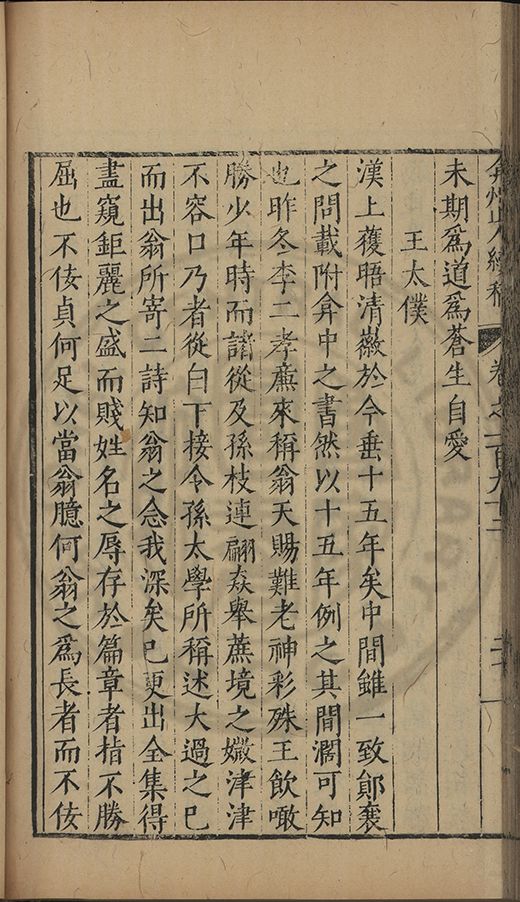 弇州山人續稿 卷之一百九十二
未期爲道爲蒼生自愛
王太僕
漢上獲晤清徽於今垂十五年矣中間雖一致鄖襄
之問載附弇中之書然以十五年例之其間濶可知
也昨冬李二孝廉來稱翁天賜難老神彩殊王飲噉
勝少年時而諸從及孫枝連翩森舉蔗境之媺津津
不容口乃者從白下接令孫太學所稱述大過之已
而出翁所寄二詩知翁之念我深矣已更出全集得
盡窺鉅麗之盛而賤姓名之辱存於篇章者指不勝
屈也不佞貞何足以當翁臆何翁之爲長者而不佞